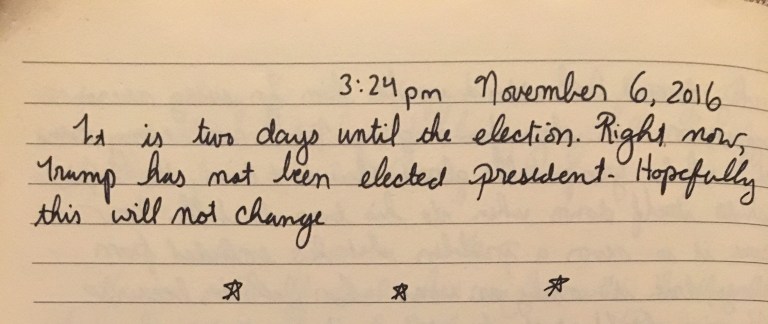 3:24pm November 6, 2016
It is two days until the election. Right now,
Trump has not been elected president. Hopefully
this will not change